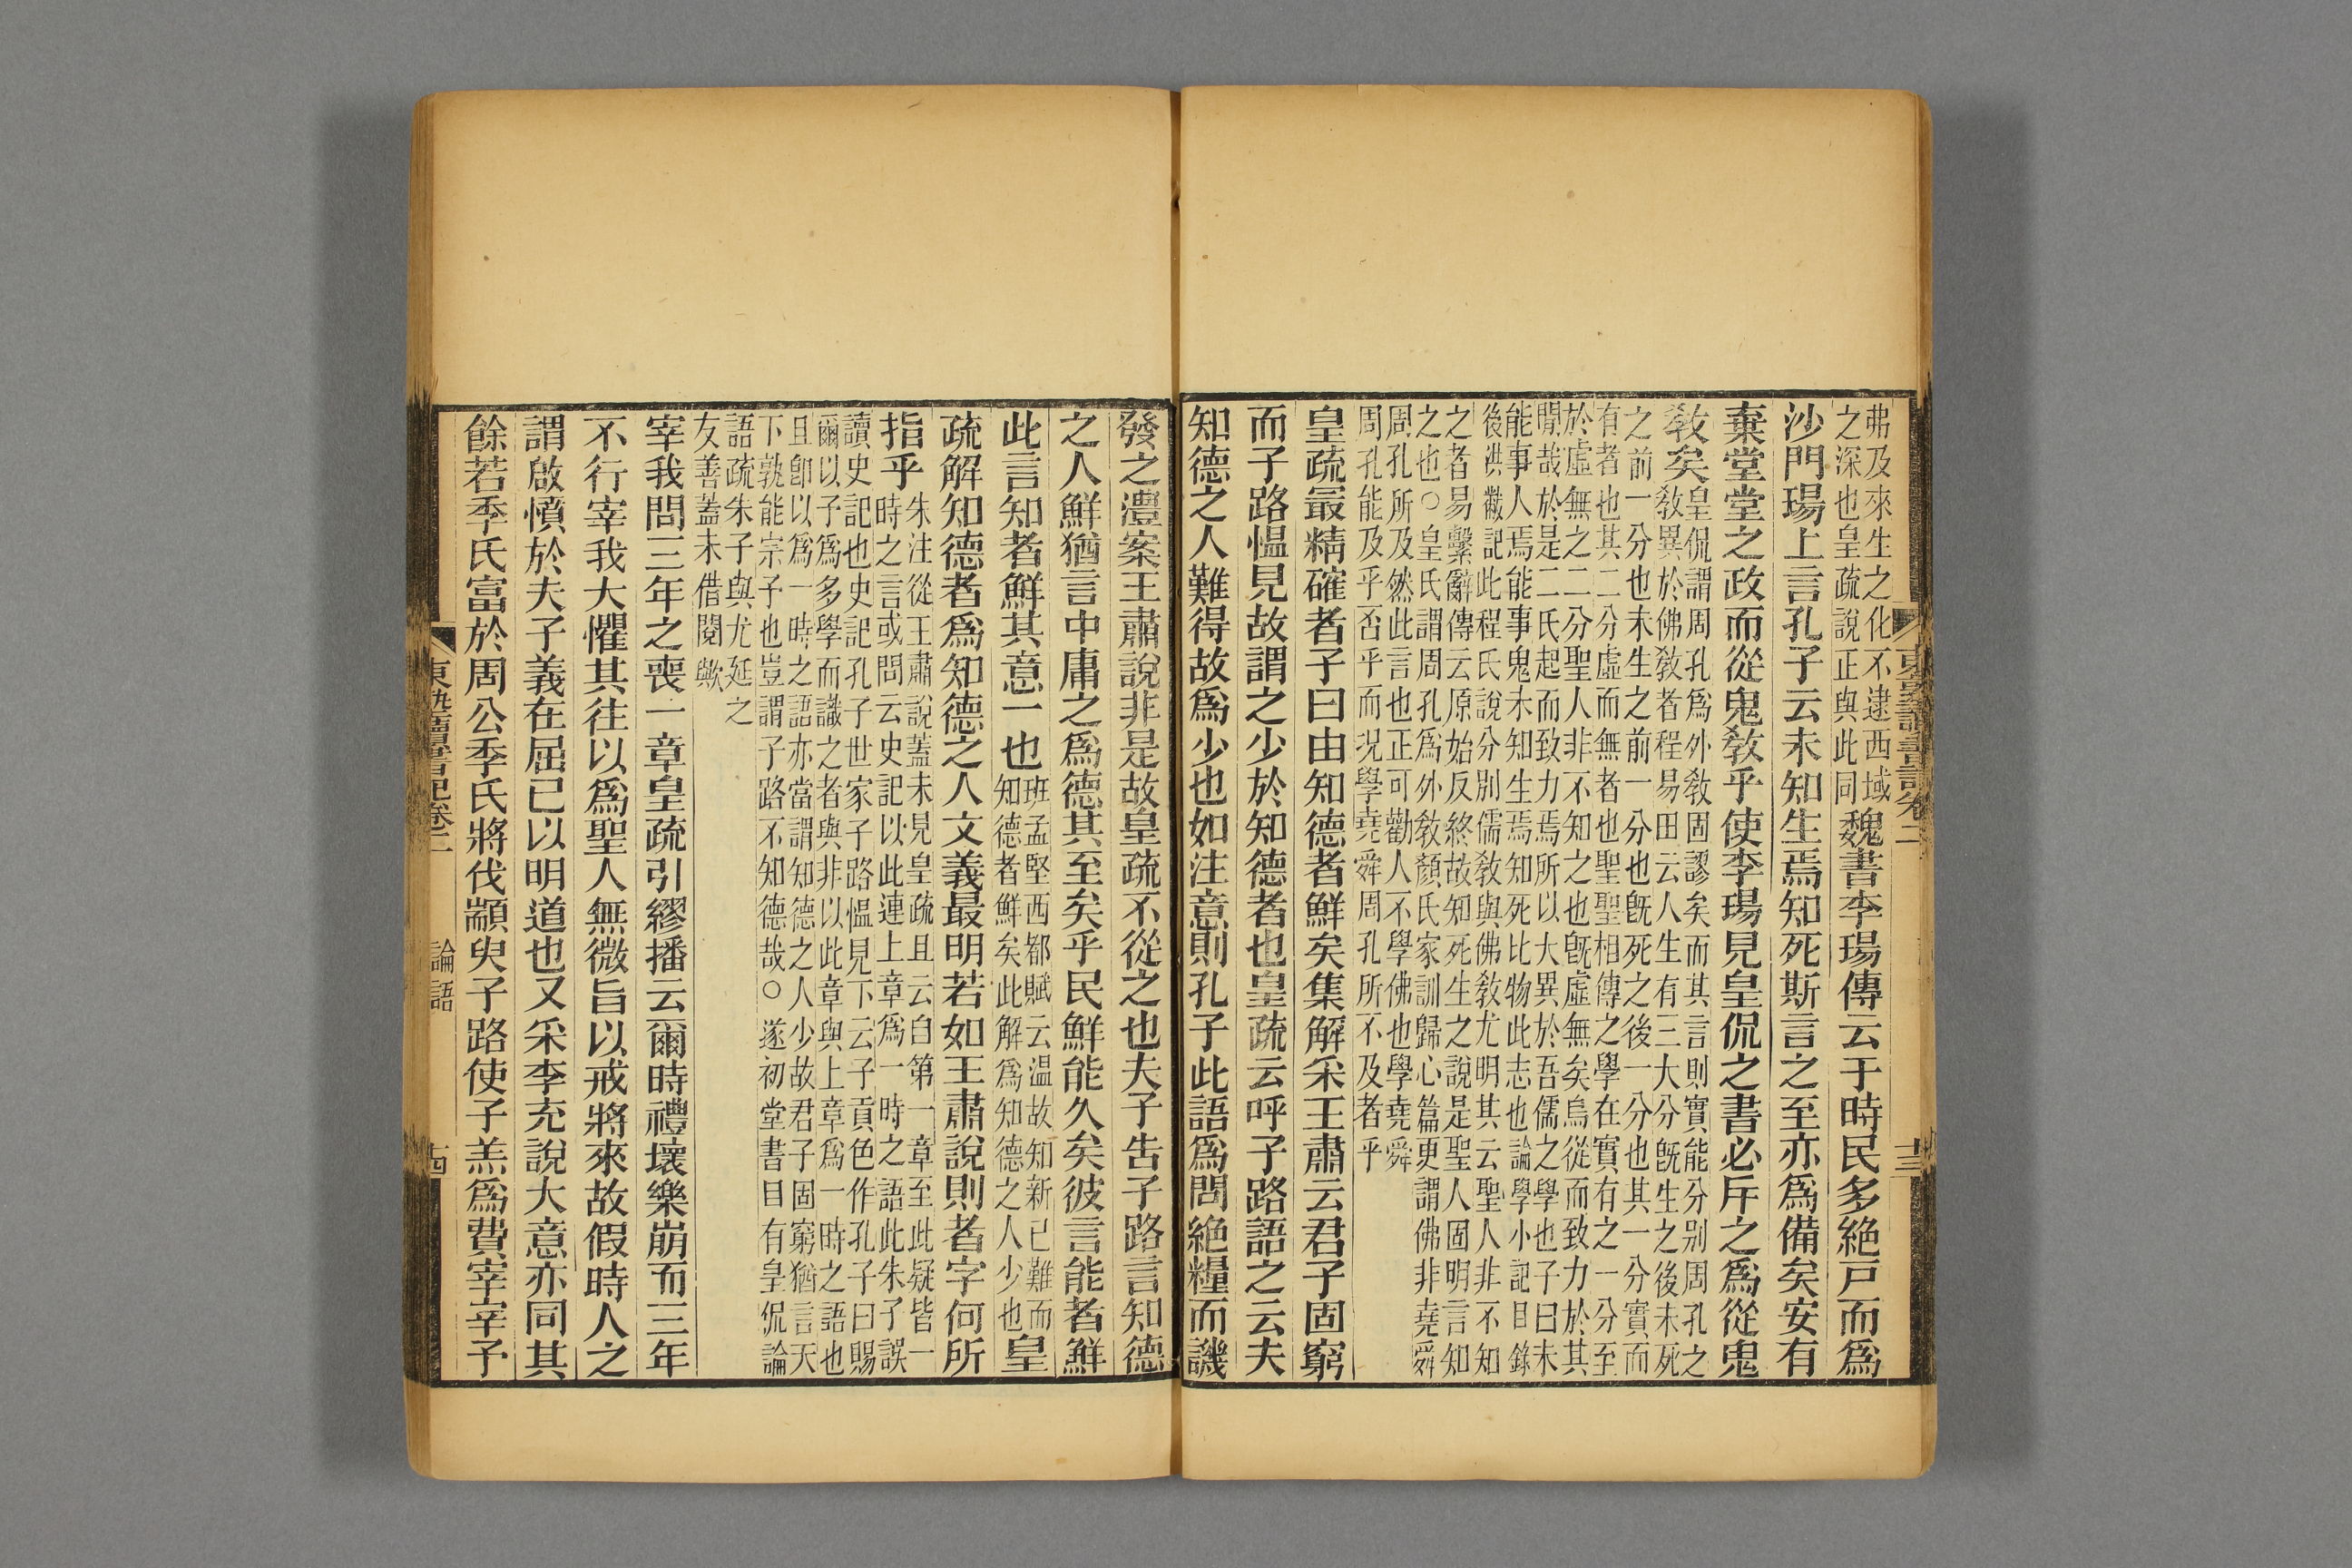 東塾讀書記卷二
十三
弗及來生之化不逮西域
之深也皇疏說正與此同
魏書李瑒傳云于時民多絕戸而爲
沙門瑒上言孔子云未知生焉知死斯言之至亦爲備矣安有
棄堂堂之政而從鬼敎乎使李瑒見皇侃之書必斥之爲從鬼
敎矣
皇侃謂周孔爲外敎固謬矣而其言則實能分别周孔之
敎異於佛敎者程易田云人生有三大分旣生之後未死
之前一分也未生之前一分也旣死之後一分也其一分實而
有者也其二分虛而無者也聖聖相傳之學在實有之一分至
於虛無之二分聖人非不知之也旣虛無矣烏從而致力於其
閒哉於是二氏起而致力焉所以大異於吾儒之學也子曰未
能事人焉能事鬼未知生焉知死比物此志也論學小記目錄
後洪黻記此程氏說分别儒敎與佛敎尤明其云聖人非不知
之者易繫辭傳云原始反終故知死生之說是聖人固明言知
之也○皇氏謂周孔爲外敎顏氏家訓歸心篇更謂佛非堯舜
周孔所及然此言也正可勸人不學佛也學堯舜
周孔能及乎否乎而況學堯舜周孔所不及者乎
皇疏最精確者子曰由知德者鮮矣集解采王肅云君子固窮
而子路慍見故謂之少於知德者也皇疏云呼子路語之云夫
知德之人難得故爲少也如注意則孔子此語爲問絶糧而譏
發之澧案王肅說非是故皇疏不從之也夫子告子路言知德
之人鮮猶言中庸之爲德其至矣乎民鮮能久矣彼言能者鮮
此言知者鮮其意一也
班孟堅西都賦云温故知新已難而
知德者鮮矣此解爲知德之人少也
皇
疏解知德者爲知德之人文義最明若如王肅說則者字何所
指乎
朱注從王肅說蓋未見皇疏且云自第一章至此疑皆一
時之言或問云史記以此連上章爲一時之語此朱子誤
讀史記也史記孔子世家子路慍見下云子貢色作孔子曰賜
爾以子爲多學而識之者與非以此章與上章爲一時之語也
且卽以爲一時之語亦當謂知德之人少故君子固窮猶言天
下孰能宗予也豈謂子路不知德哉○遂初堂書目有皇侃論
語疏朱子與尤延之
友善蓋未借閱歟
宰我問三年之喪一章皇疏引繆播云爾時禮壞樂崩而三年
不行宰我大懼其往以爲聖人無微旨以戒將來故假時人之
謂啟憤於夫子義在屈己以明道也又采李充說大意亦同其
餘若季氏富於周公季氏將伐顓臾子路使子羔爲費宰宰予
東塾讀書記卷二
論語
十四